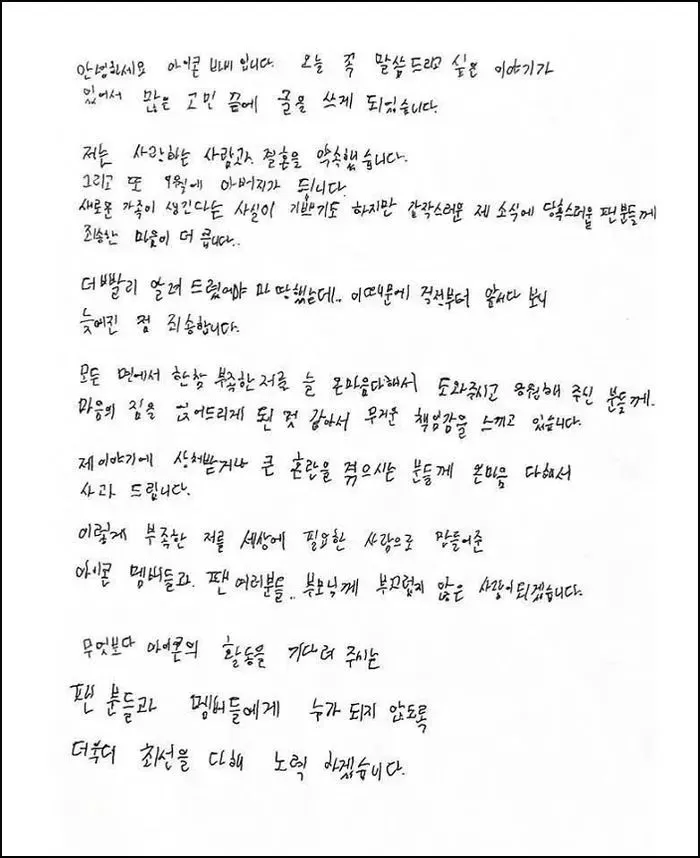 안녕하세요 아이콘 바비 입니다. 오늘 꼭 말씀드리고 싶은 이야기가
있어서 많은 고민 끝에 글을 쓰게 되었습니다.
저는 사랑하는 사람과 결혼을 약속했습니다.
그리고 또 9월에 아버지가 됩니다.
새로운 가족이 생긴다는 사실이 기쁘기도 하지만 갑작스러운 제 소식에 당혹스러울 팬분들께
죄송한 마음이 더 큽니다..
더 빨리 알려 드렸어야 마땅했는데.. 이때문에 걱정부터 앞서다 보니
늦어진 점 죄송합니다.
모든 면에서 한참 부족한 저를 늘 온마음다해서 도와주시고 응원해 주신 분들께.
마음의 짐을 얹어드리게 된 것 같아서 무거운 책임감을 느끼고 있습니다.
제 이야기에 상처받거나 큰 혼란을 겪으시는 분들께 온마음 다해서
사과 드립니다.
이렇게 부족한 저를 세상에 필요한 사람으로 만들어준
아이콘 멤버들과. 팬 여러분들.. 부모님께 부끄럽지 않은 사람이되겠습니다.
무엇보다 아이콘의 활동을 기다려 주시는
팬 분들과 멤버들에게 누가 되지 않도록
더욱더 최선을 다해 노력 하겠습니다.